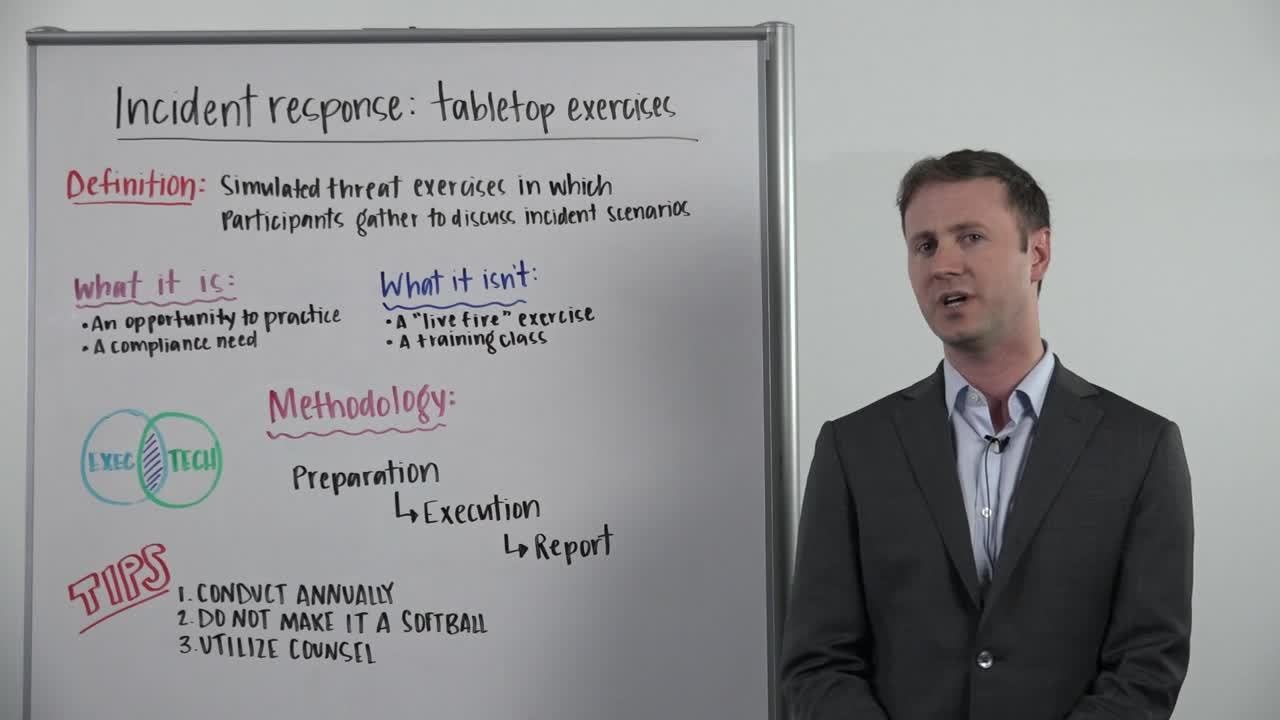 Incident response: tabletop exercises
Definition: Simulated threat exercises in which
participants gather to discuss incident scenarios
What it is:
• An opportunity to practice
• A compliance need
What it isn't:
• A "live fire" exercise
• A training class
Methodology:
EXEC TECH
Preparation
↳ Execution
↳ Report
TIPS
1. CONDUCT ANNUALLY
2. DO NOT MAKE IT A SOFTBALL
3. UTILIZE COUNSEL